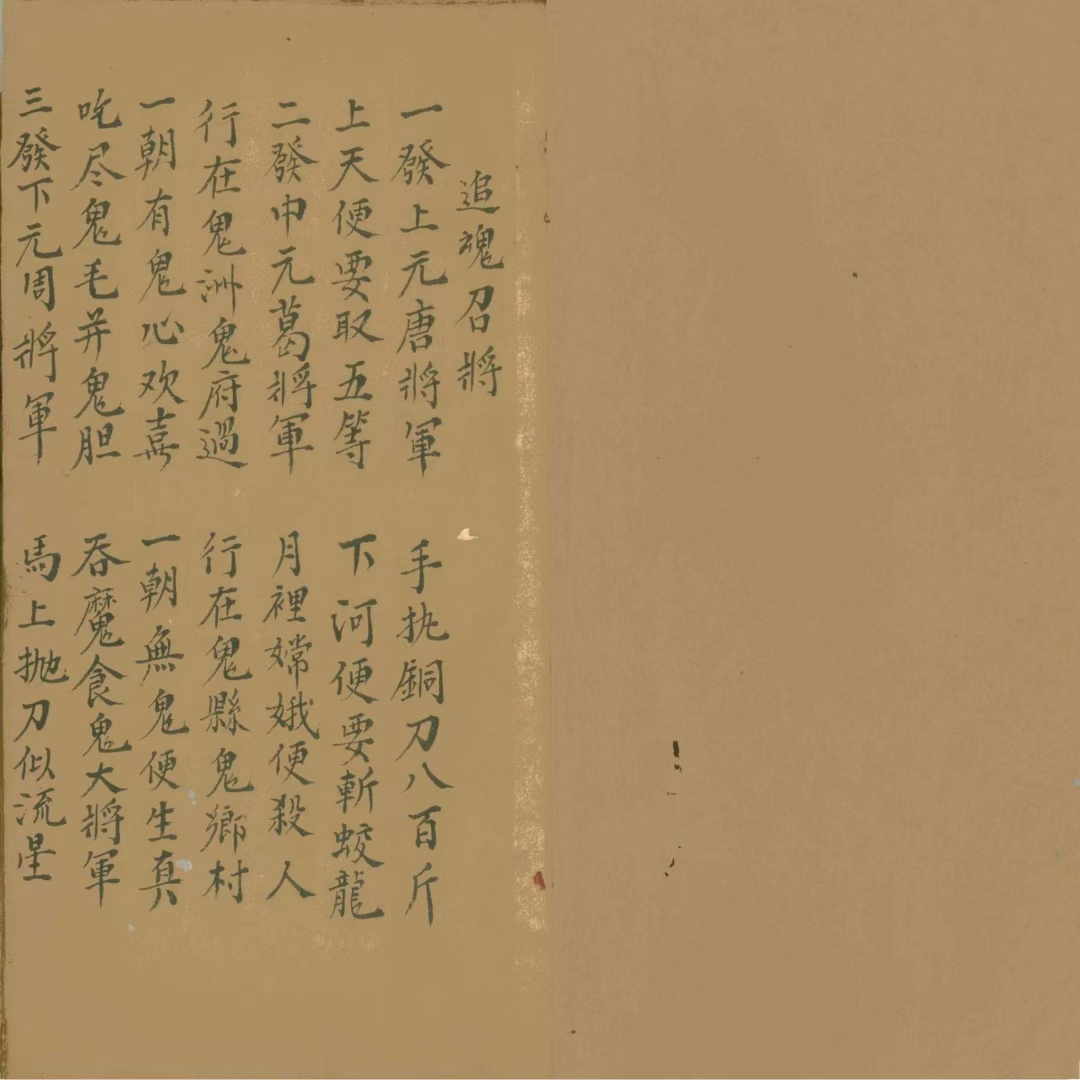 追魂召將
一發上元唐將軍 手执銅刀八百斤
上天便要取五等 下河便要斬蛟龍
二發中元葛將軍 月裡嫦娥便殺人
行在鬼洲鬼府過 行在鬼縣鬼鄉村
一朝有鬼心欢喜 一朝無鬼便生真
吃尽鬼毛并鬼胆 吞魔食鬼大將軍
三發下元周將軍 馬上抛刀似流星